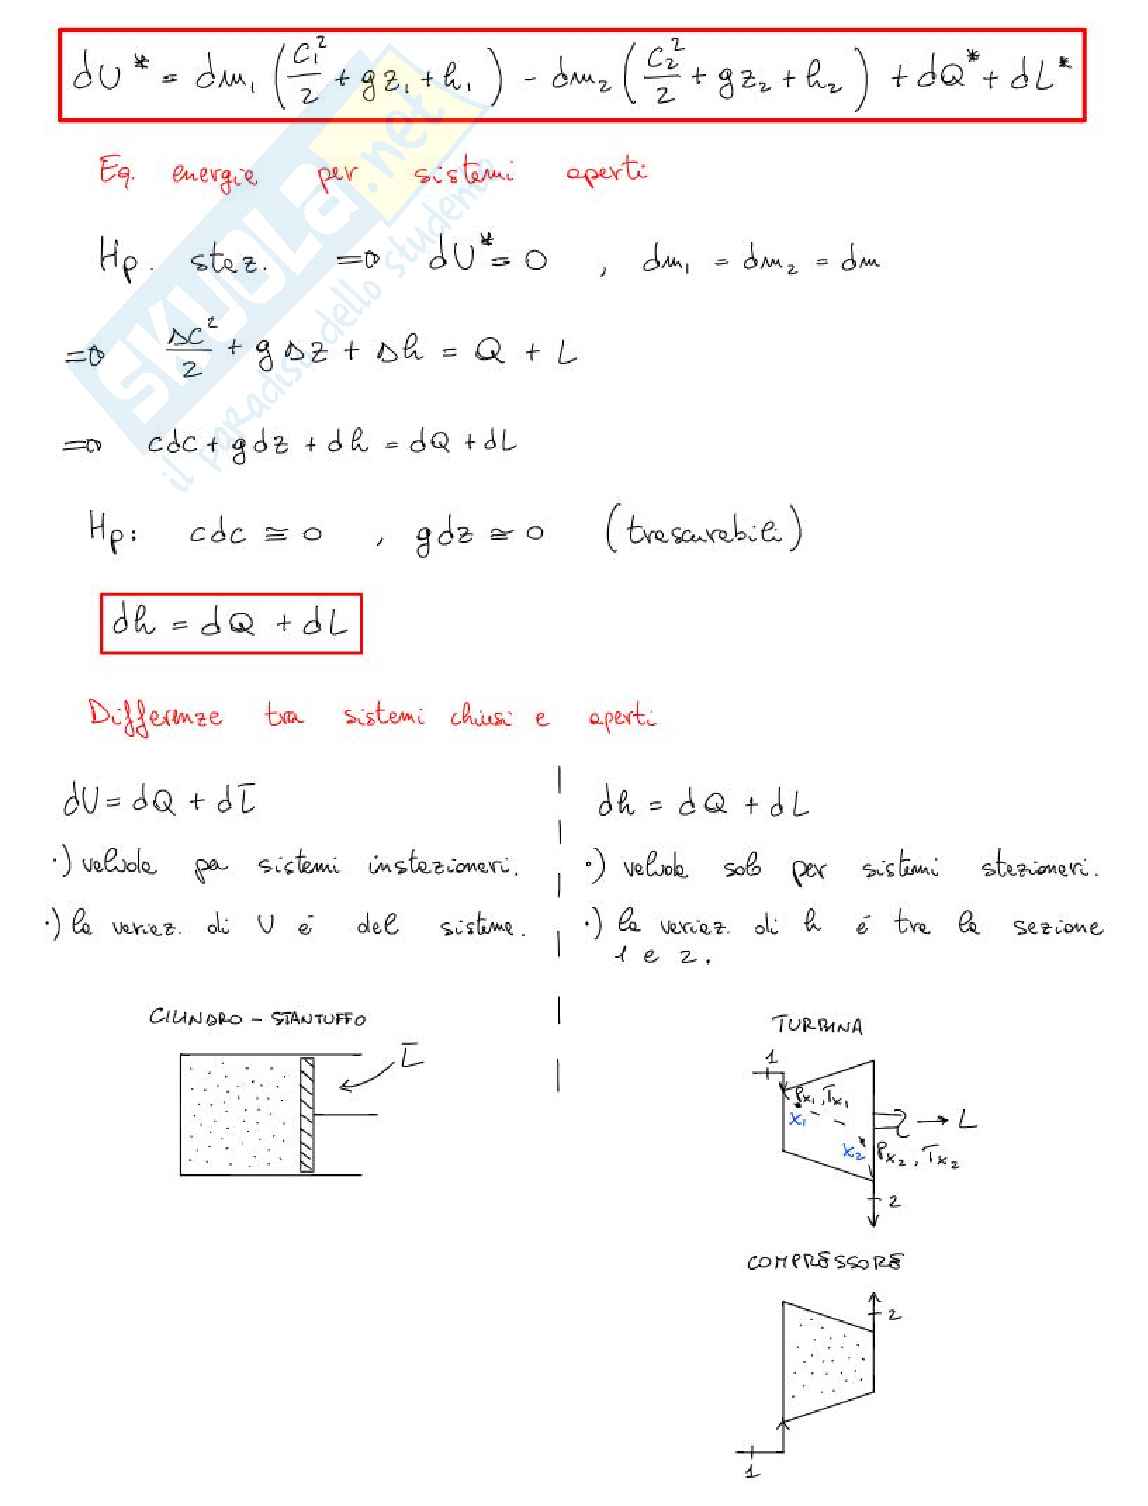 dU* = dm₁ (c₁²/2 + gz₁ + h₁) - dm₂ (c₂²/2 + gz₂ + h₂) + dQ* + dL*
Eq. energia per sistemi aperti
Hp. staz. => dU* = 0 , dm₁ = dm₂ = dm
=> Δc²/2 + gΔz + Δh = Q + L
=> cdc + gdz + dh = dQ + dL
Hp: cdc ≅ 0 , gdz ≅ 0 (trascurabili)
dh = dQ + dL
Differenze tra sistemi chiusi e aperti
dU = dQ + dL̄
·) valida per sistemi instazionari.
·) la variaz. di U é del sistema.
CILINDRO - STANTUFFO
L̄
dh = dQ + dL
·) valida solo per sistemi stazionari.
·) la variaz. di h é tra la sezione
1 e 2.
TURBINA
1
Px₁, Tx₁
x₁
L
x₂
Px₂, Tx₂
2
COMPRESSORE
2
1
SKUOLA.net
il paradiso dello studente